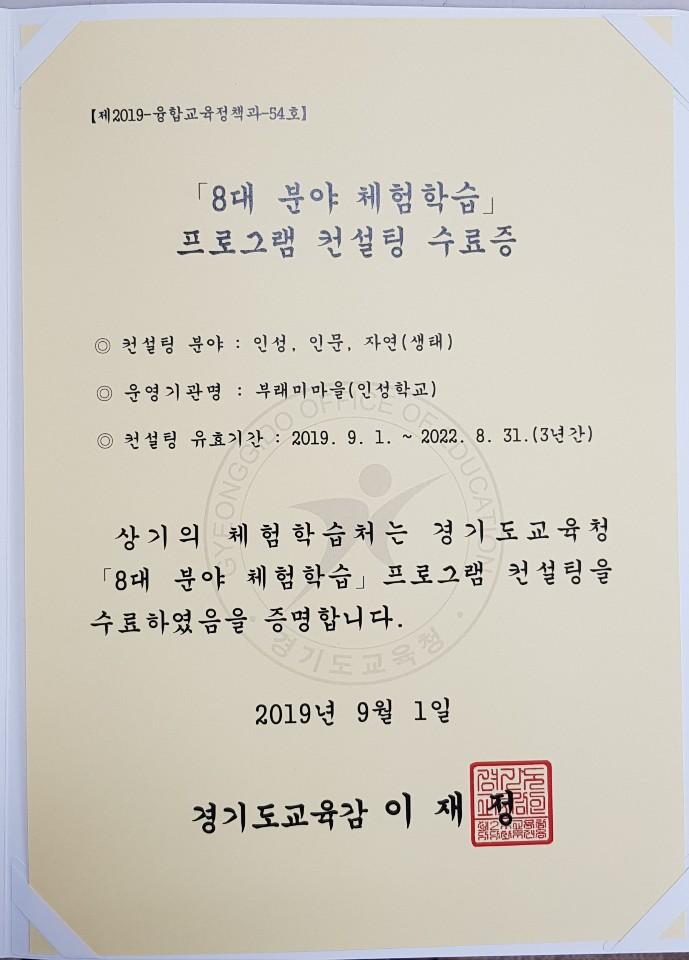 【제2019-융합교육정책과-54호】
「8대 분야 체험학습」
프로그램 컨설팅 수료증
◎ 컨설팅 분야 : 인성, 인문, 자연(생태)
◎ 운영기관명 : 부래미마을(인성학교)
◎ 컨설팅 유효기간 : 2019. 9. 1. ~ 2022. 8. 31.(3년간)
GYEONGGIDO OFFICE OF EDUCATION
상기의 체험학습처는 경기도교육청
「8대 분야 체험학습」 프로그램 컨설팅을
수료하였음을 증명합니다.
경기도교육청
2019년 9월 1일
경기도교육감 이 재 정